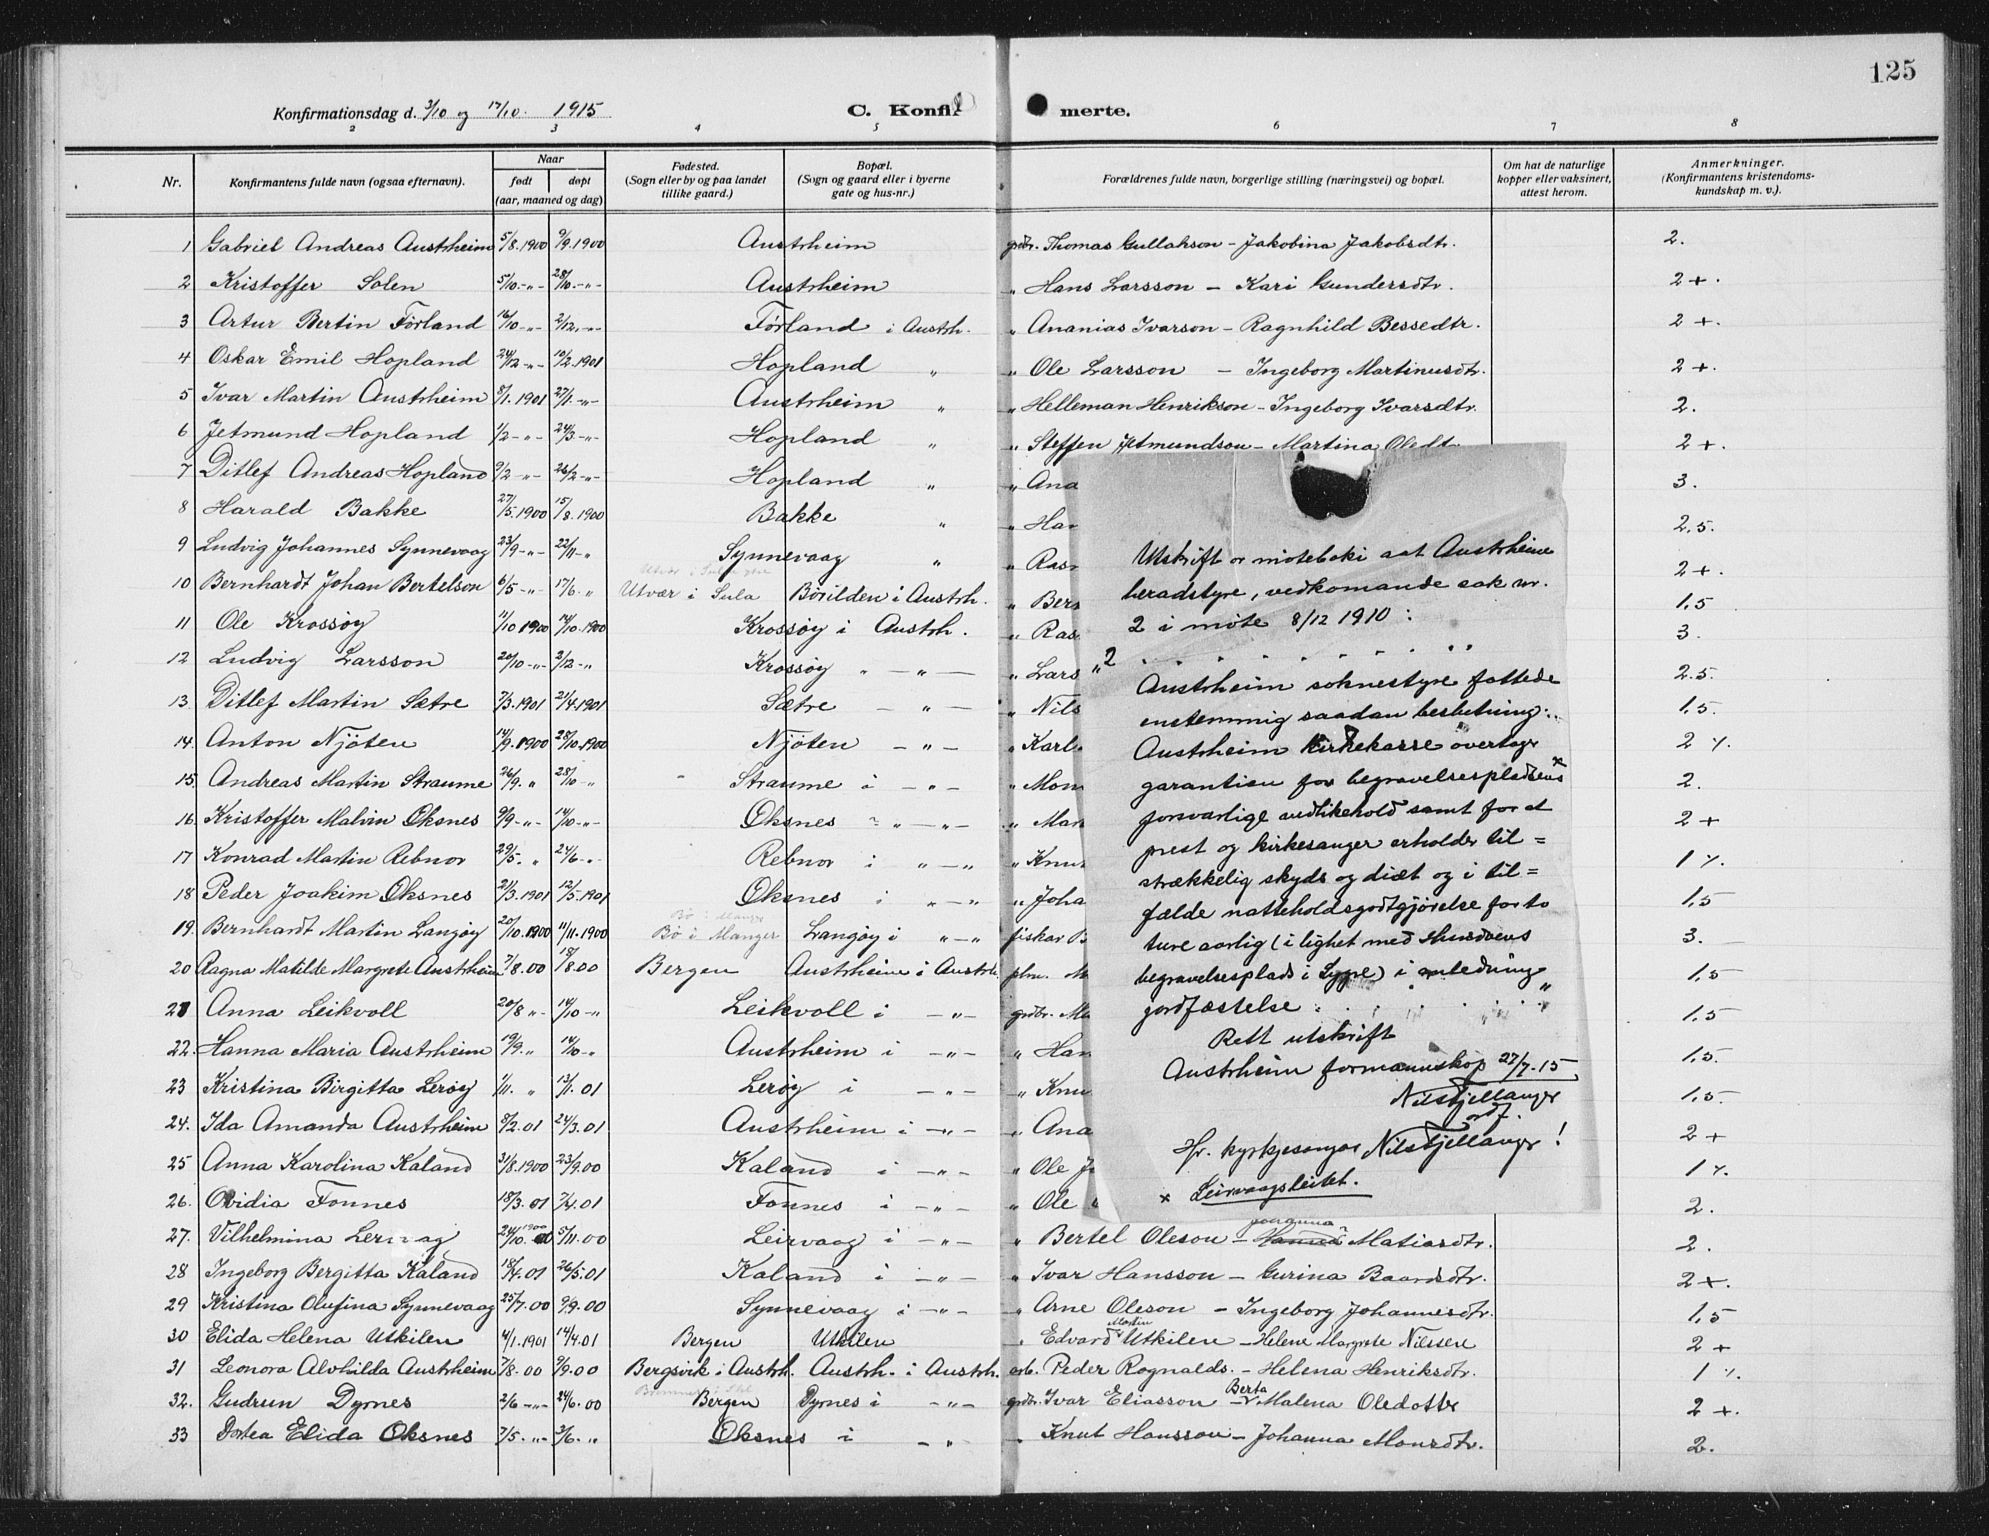 125
Konfirmationsdag d. 3/10 og 17/10 1915
C. Konfir merte.
2 3 4 5 6 7 8
Nr. Konfirmantens fulde navn (ogsaa efternavn). Naar født døpt (aar, maaned og dag) Fødested. (Sogn eller by og paa landet tillike gaard.) Bopæl. (Sogn og gaard eller i byerne gate og hus-nr.) Forældrenes fulde navn, borgerlige stilling (næringsvei) og bopæl. Om hat de naturlige kopper eller vaksinert, attest herom. Anmerkninger. (Konfirmantens kristendoms-kundskap m. v.).
1 Gabriel Andreas Austrheim 5/8.1900 9/9.1900 Austrheim grdbr. Thomas Gullakson – Jakobina Jakobsdtr. 2.
2 Kristoffer Solen 5/10 -„- 28/10 -„- Austrheim „ Hans Larsson – Kari Gundersdtr. 2+.
3 Artur Bertin Förland 16/10 -„- 2/12 -„- Førland i Austrh. „ Ananias Ivarson – Ragnhild Bessedtr. 2+.
4 Oskar Emil Hopland 24/12 -„- 10/2.1901 Hopland „ „ Ole Larsson – Ingeborg Martinusdtr. 2+.
5 Ivar Martin Austrheim 8/1.1901 27/1 -„- Austrheim „ „ Helleman Henrikson – Ingeborg Ivarsdtr. 2.
6 Jetmund Hopland 1/2 -„- 24/3 -„- Hopland „ „ Steffen Jetmundson – Martina Oledtr. 2+.
7 Ditlef Andreas Hopland 9/2 -„- 26/2 -„- Hopland „ „ Ana 3.
8 Harald Bakke 27/5.1900 15/8.1900 Bakke „ „ Han 2.5.
9 Ludvig Johannes Synnevaag 23/9 -„- 22/11 -„ Synnevaag „ „ Ras 2+.
10 Bernhardt Johan Bertelson 6/5 -„- 17/6 „ Utvær i Sula Børilden i Austrh. „ Bers 1,5
11 Ole Krossøy 11/10 1900 14/10.1900 Krossøy i Austrh. „ Ras 3.
12 Ludvig Larsson 20/10 -„- 2/12 -„ Krossøy „ – „ – „ Lars 2.5.
13 Ditlef Martin Sætre 7/3.1901 21/4.1901 Sætre – „ – „ Nils 1,5.
14. Anton Njöten 14/9.1900 28/10.1900 Njöten – „ – „ Karl 2 %.
15. Andreas Martin Straume 26/9. „ 28/10 -„ Straume i – „ – „ Mon 2.
16. Kristoffer Malvin Oksnes 9/9 -„- 14/10 -„- Oksnes „ – „ – „ Mar 2+
17 Konrad Martin Rebnor 29/5. „ 24/6 -„ Rebnor i „ – „ „ Knut 1 %.
18 Peder Joakim Oksnes 21/3.1901 12/5.1901 Oksnes i „ – „ „ Joha 1,5
19. Bernhardt Martin Langøy 20/10.1900 11/11.1900 Bö i Manger Langøy i „ – „ fisker B 3.
20 Ragna Matilde Margrete Austrheim 7/8.00 18/8.00 Bergen Austrheim i Austrh. M 1,5
21 Anna Leikvoll 20/8 „- 14/10 -„ Leikvoll i – „ – grdbr. Ma 1,5
22. Hanna Maria Austrheim 19/9. „ 14/10 -„ Austrheim i – „ – „ Han 1,5.
23 Kristina Birgitta Lerøy 1/11. „ 13/1.01 Lerøy i – „ – „ Knu 1,5.
24. Ida Amanda Austrheim 8/2.01 24/3.01 Austrheim i – „ – „ Ana 2+
25 Anna Karolina Kaland 31/8.1900 23/9.00 Kaland i – „ – „ Ole J 1 %.
26. Ovidia Fonnes 18/3.01 7/4.01 Fonnes i – „ – „ Ole 2.
27. Vilhelmina Ler ag 24/10.1900 5/11.00 Leirvaag i – „ – „ Bertel Oleson – Johanna Matiasdtr. 2.
28 Ingeborg Bergitta Kaland 18/4.01 26/5.01 Kaland i – „ – „ Ivar Hansson – Gurina Baardsdtr. 2+.
29 Kristina Olufina Synnevaag 25/7.00 9/9.00 Synnevaag i – „ – „ Arne Oleson – Ingeborg Johannesdtr. 1,5
30 Elida Helena Utkilen 4/1.1901 14/4.01 Bergen Utkilen „ Edvard Martin Utkilen – Helene Margrete Nilssen 2+
31 Leonora Alvhilda Austrheim 7/8.00 9/9.00 Bergsvik i Austrh. Austrh. i Austrh. arb. Peder Rognalds. – Helena Henriksdtr. 1 %.
32. Gudrun Dyrnes 2/6 -„- 24/6.00 Bergen Dyrnes i – „ – grdbr. Ivar Eliasson – Berta Malena Oledotter 2+.
33 Dortea Elida Oksnes 7/5. „- 3/6. „ Oksnes i – „ – – Knut Hansson – Johanna Monsdtr. 2.
Utskrift or møteboki aat Austrheim
heradstyre, vedkomande sak nr.
2 i møte 8/12 1910 :
„2 . . . . . . . . . .
Austrheim soknestyre fattede
enstemmig saadan beslutning:
Austrheim kirkekasse overtager
garantien for begravelsespladsens x
forsvarlige vedlikehold samt for at
prest og kirkesanger erholder til=
strækkelig skyds og diæt og i til=
fælde natteholdsgodtgjörelse for to
ture aarlig (i lighet med
begravelsesplads i Lygre) i anledning
jordfæstelse . . . . . . „
Rett utskrift
Austrheim formannskap 27/7-15
Nils Fjellanger
ordf.
Hr. kyrkjesongar Nils Fjellanger!
x Leirvaagsleitet.